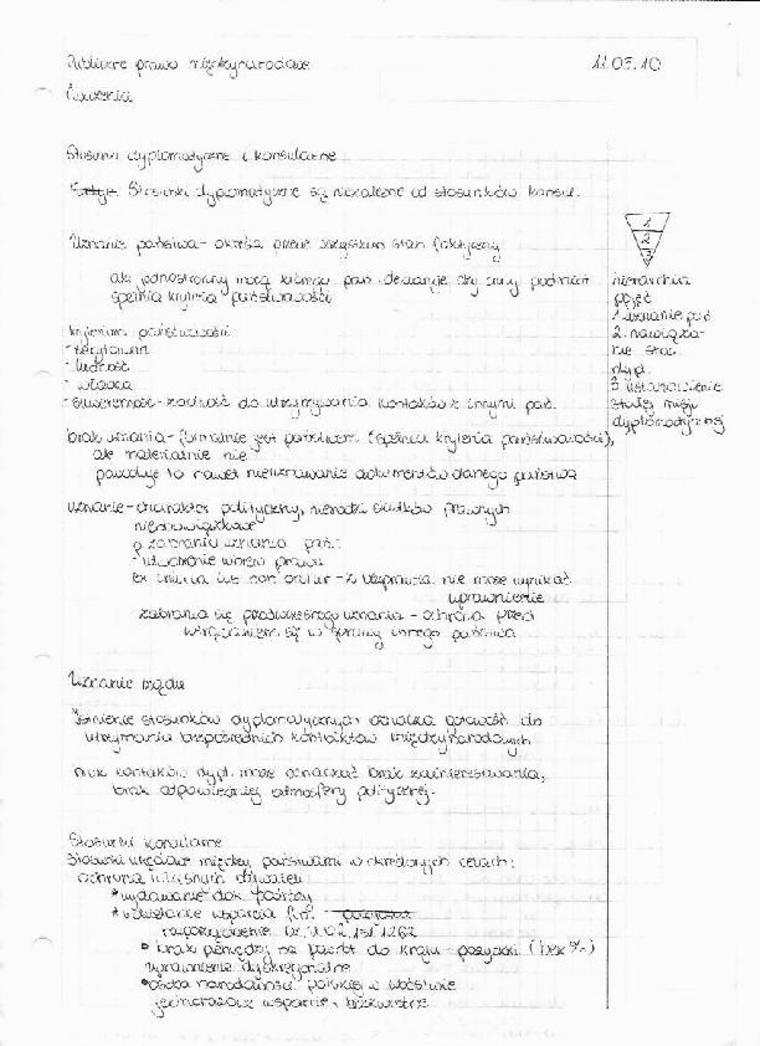 Publiczne prawo międzynarodowe 11.03.10
Ćwiczenia
Stosunki dyplomatyczne i konsularne
Stosunki dyplomatyczne są niezależne od stosunków konsul.
Uznanie państwa - określa przede wszystkim stan faktyczny
akt jednostronny mocą którego pań. deklaruje czy inny podmiot
spełnia kryteria państwowości
kryterium państwowości:
- terytorium
- ludność
- władza
- suwerenność - zdolność do utrzymywania kontaktów z innymi pań.
brak uznania - formalnie jest państwem (spełnia kryteria państwowości),
ale materialnie nie
powoduje to nawet nieuznawanie dokumentów danego państwa
uznanie - charakter polityczny, nierodzi skutków prawnych
nieobowiązkowe
zabrania uznania pań.:
- utworzenie wbrew prawu
ex iniuria ius non oritur - z bezprawia nie może wynikać
uprawnienie
zabrania się przedwczesnego uznania - ochrona przed
wtrącaniem się w sprawy innego państwa
Uznanie rządu
Istnienie stosunków dyplomatycznych oznacza gotowość do
utrzymania bezpośrednich kontaktów międzynarodowych
brak kontaktów dypl. może oznaczać brak zainteresowania,
brak odpowiedniej atmosfery politycznej.
Stosunki konsularne
Stosunki urzędowe między państwami w określonych celach:
ochrona własnych obywateli
* wydawanie dok. podróży
* udzielanie wsparcia fin.
rozporządzenie Dz.U.02.151.1262
• brak pieniędzy na powrót do kraju - pożyczki (bez %)
uprawnienie dyskrecjonalne
• osoba narodowości polskiej w
jednorazowe wsparcie, bezzwrotne
1
2
3
hierarchia
pojęć
1. uznanie pań
2. nawiąza-
nie stos.
dypl.
3. ustanowienie
stałej misji
dyplomatycznej